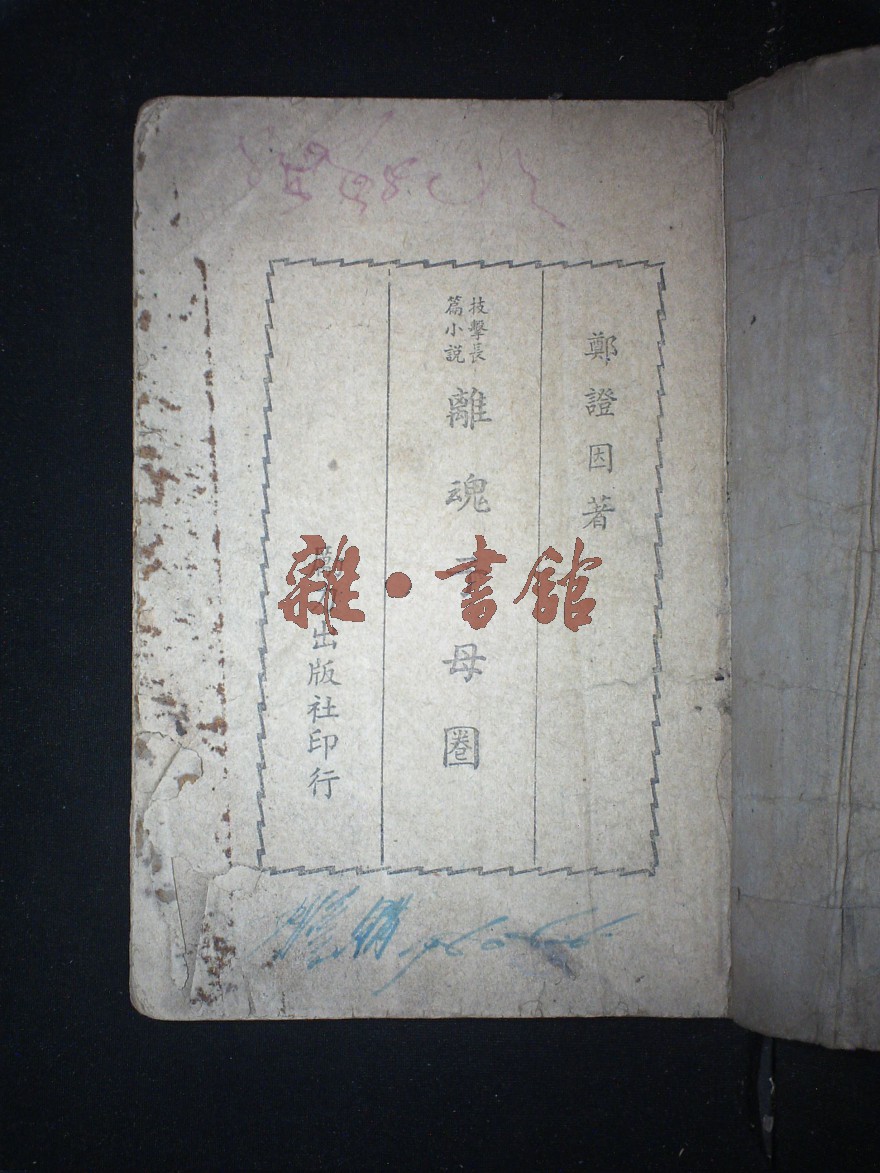 鄭證因著
技擊長
篇小說
離魂子母圈
出版社印行
雜·書館